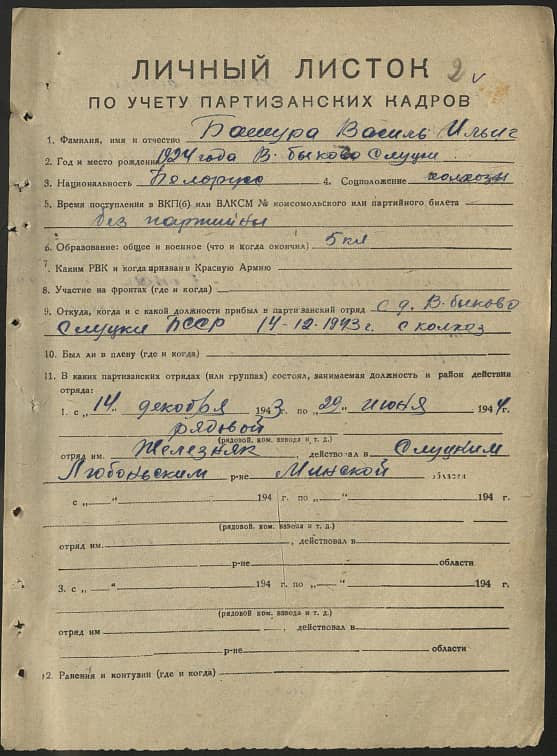 ЛИЧНЫЙ ЛИСТОК 2 v
ПО УЧЕТУ ПАРТИЗАНСКИХ КАДРОВ
1. Фамилия, имя и отчество Башура Василь Ильич
2. Год и место рождения 1924 года В. быково Слуцки
3. Национальность Белорус 4. Соцположение колхозн
5. Время поступления в ВКП(б) или ВЛКСМ № комсомольского или партийного билета
без партийны
6. Образование: общее и военное (что и когда окончил) 5 кл
7. Каким РВК и когда призван в Красную Армию
8. Участие на фронтах (где и когда)
9. Откуда, когда и с какой должности прибыл в партизанский отряд с д. В-быково
Слуцки БССР 14-12-1943 г. с колхоз
10. Был ли в плену (где и когда)
11. В каких партизанских отрядах (или группах) состоял, занимаемая должность и район действия
отряда:
1. с „14" декабря 1943 г. по „29" июня 1944 г.
рядовой
(рядовой, ком. взвода и т. д.)
отряд им. Железняк, действовал в Слуцким
Любоньским р-не Минской области
с „ — " 194 г. по „ — " 194 г.
(рядовой, ком. взвода и т. д.)
отряд им. , действовал в
р-не области
3. с „ — " 194 г. по „ — " 194 г.
(рядовой, ком. взвода и т. д.)
отряд им , действовал в
р-не области
12. Ранения и контузии (где и когда)